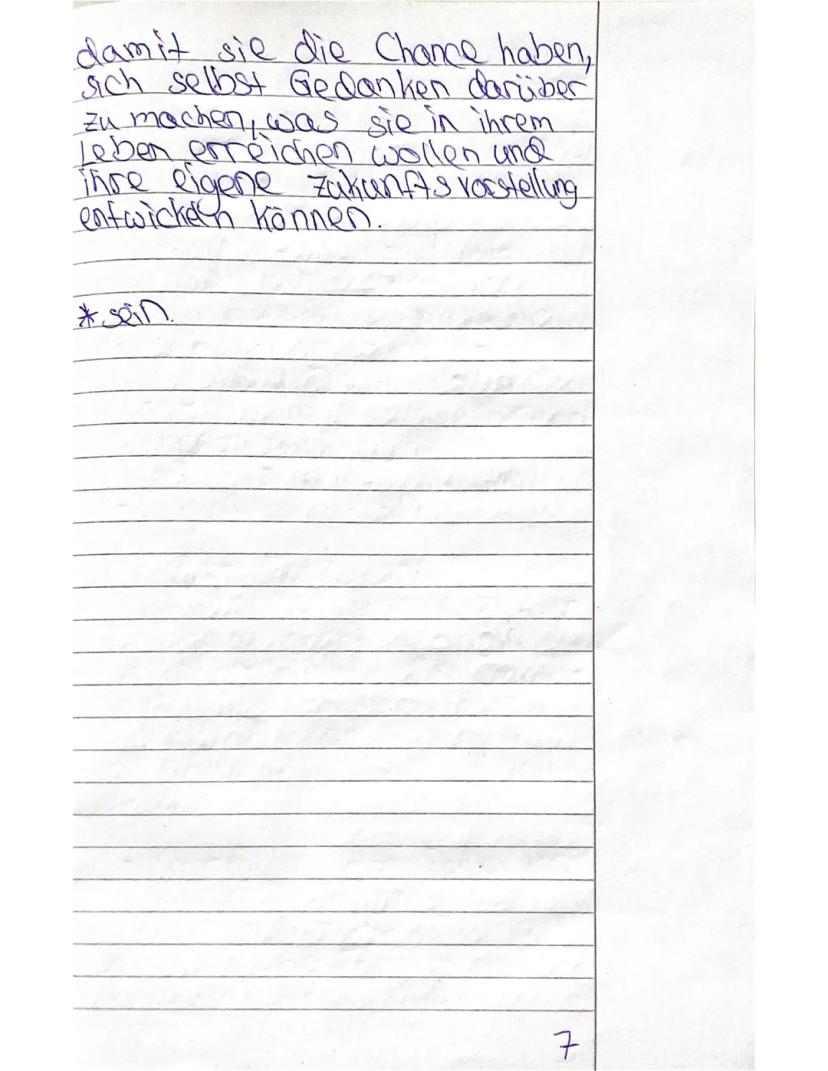 damit sie die Chance haben,
sich selbst Gedanken darüber
zu machen, was sie in ihrem
Leben erreichen wollen und
ihre eigene Zukunftsvorstellung
entwickeln können.
*sein.
7